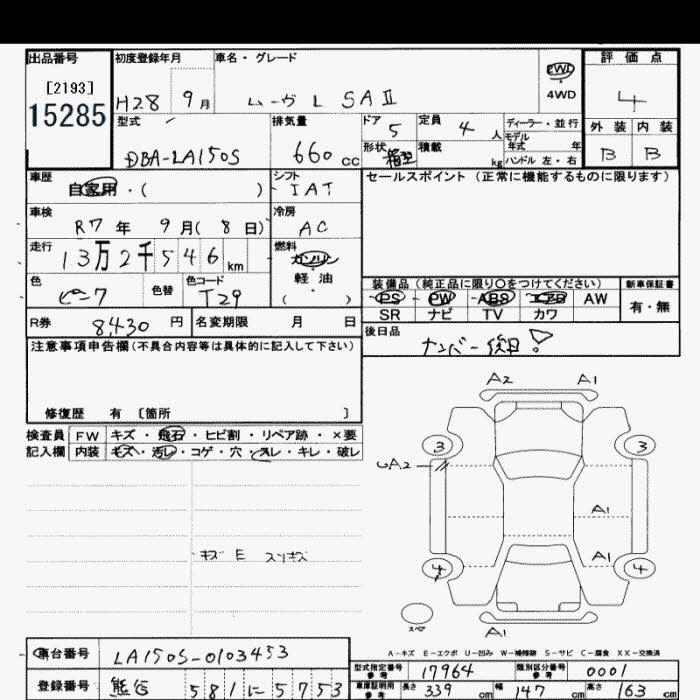 出品番号 初度登録年月 車名・グレード 評価点
[2193]
15285
H28 9月 ムーヴ L SAⅡ 2WD 4WD 4
型式 排気量 ドア 5 定員 4人 ディーラー・並行 外装 内装
モデル年式 年
DBA-LA150S 660cc 形状 箱型 積載 kg ハンドル 左・右 B B
車歴 シフト セールスポイント (正常に機能するものに限ります)
自家用・( ) IAT
車検 冷房
R7年 9月(8日) AC
走行 燃料
13万2千546km ガソリン
軽油
( )
色 色替 色コード 装備品 (純正品に限り〇をつけてください) 新車保証書
ピンク T29 PS PW ABS エアB AW 有・無
SR ナビ TV カワ
R券 8430円 名変期限 月 日 後日品
ナンバー後日
注意事項申告欄(不具合内容等は具体的に記入して下さい)
修復歴 有 [箇所 ]
検査員 FW キズ・飛石・ヒビ割・リペア跡・×要
記入欄 内装 キズ・汚レ・コゲ・穴・スレ・キレ・破レ
A2 A1
3 3
UA2
A1
A1
4 4
スペア
A1
キズ E スリキズ
A-キズ E-エクボ U-凹み W-補修跡 S-サビ C-腐食 XX-交換済
車台番号 LA150S-0103453
型式指定番号 参考 17964 類別区分番号 参考 0001
登録番号 熊谷 581に5753
車庫証明用 参考 長さ 339cm 幅 147cm 高さ 163cm